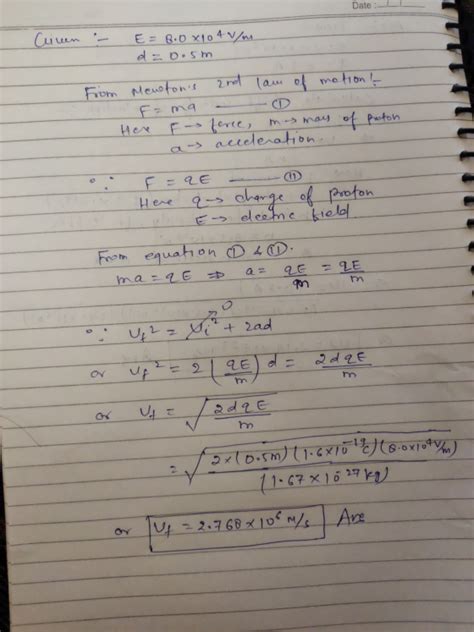 Date :
Given :- E = 8.0 × 10⁴ V/m
d = 0.5m
From Newton's 2nd law of motion :-
F = ma —— (I)
Here F → force, m → mass of proton
a → acceleration.
∵ F = qE —— (II)
Here q → charge of proton
E → electric field
From equation (I) & (II).
ma = qE ⇒ a = qE/m = qE/m
∵ Vf² = Vi²↗0 + 2ad
or Vf² = 2 (qE/m) d = 2dqE/m
or Vf = √(2dqE/m)
= √(2×(0.5m)(1.6×10⁻¹⁹C)(8.0×10⁴V/m)/(1.67×10⁻²⁷kg))
or Vf = 2.768 × 10⁶ m/s Ans